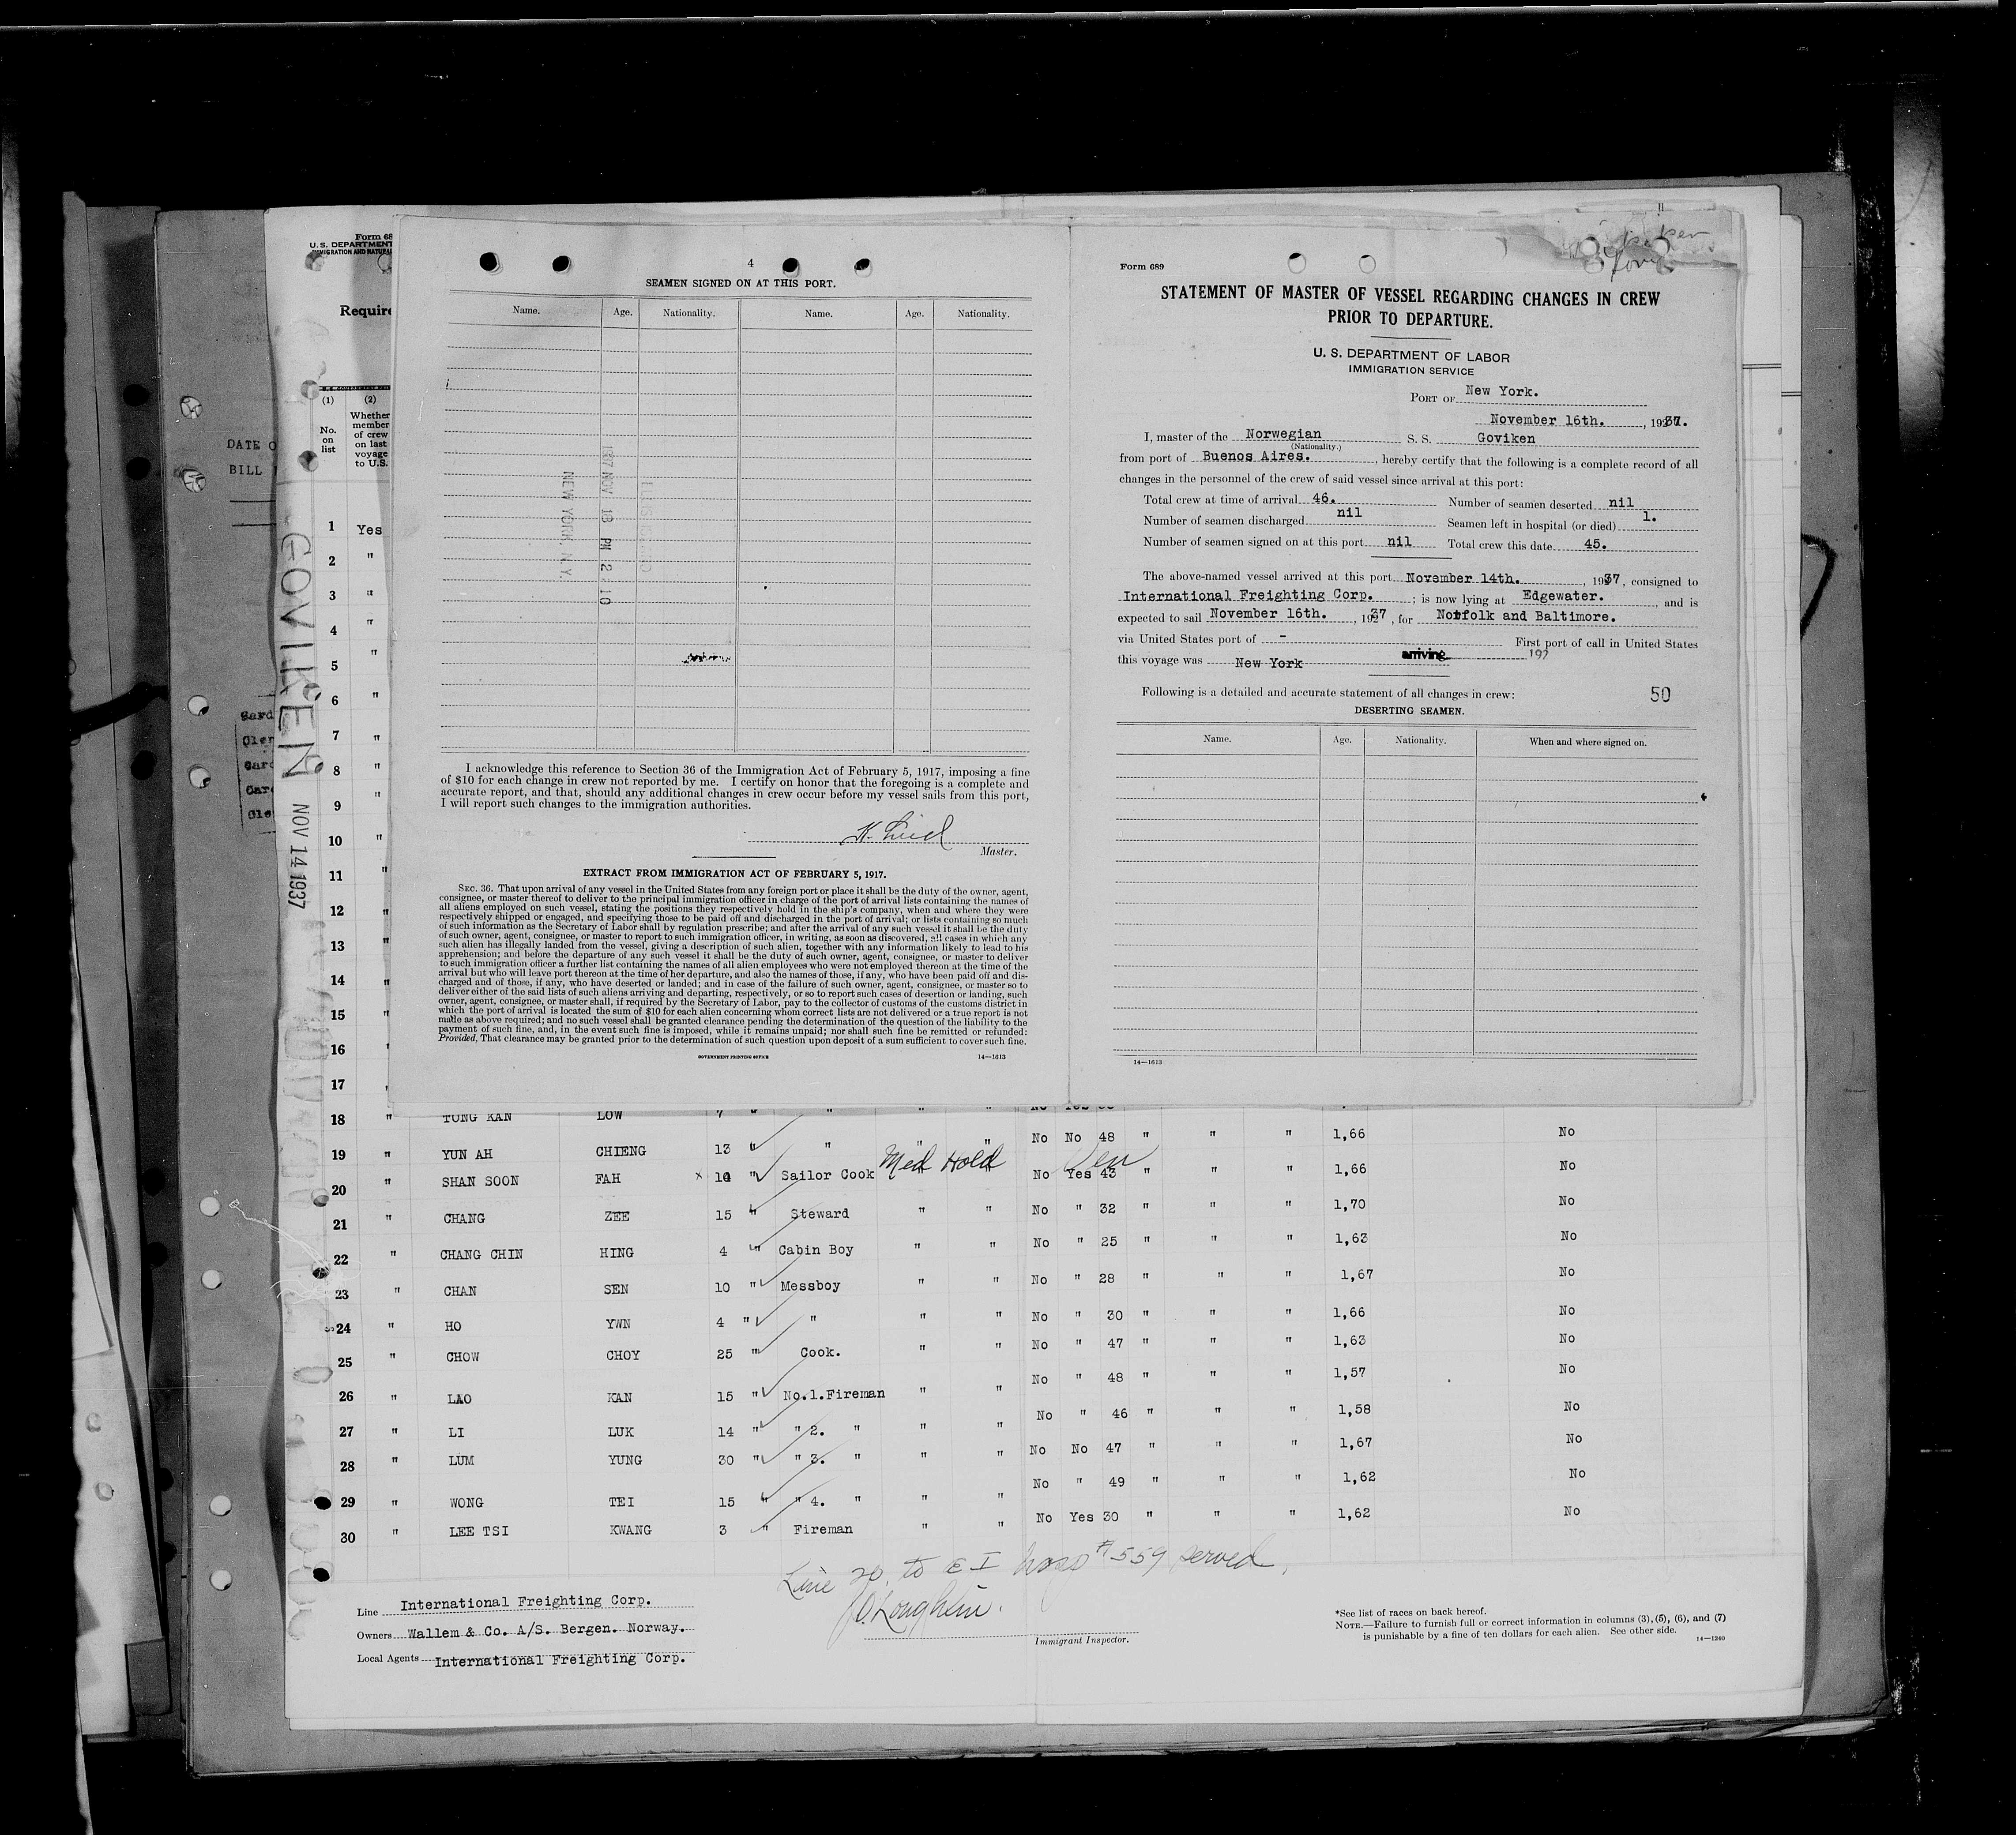 Form 68
U. S. DEPARTMENT
IMMIGRATION AND NATURAL
Require
(1) (2)
No. on list
Whether member of crew on last voyage to U.S.
DATE O
BILL
Gard
GOVIKEN NOV 14 1937
4
SEAMEN SIGNED ON AT THIS PORT.
Name. Age. Nationality. Name. Age. Nationality.
1937 NOV 18 PM 2 10
NEW YORK, N.Y.
I acknowledge this reference to Section 36 of the Immigration Act of February 5, 1917, imposing a fine
of $10 for each change in crew not reported by me. I certify on honor that the foregoing is a complete and
accurate report, and that, should any additional changes in crew occur before my vessel sails from this port,
I will report such changes to the immigration authorities.
Master.
EXTRACT FROM IMMIGRATION ACT OF FEBRUARY 5, 1917.
SEC. 36. That upon arrival of any vessel in the United States from any foreign port or place it shall be the duty of the owner, agent,
consignee, or master thereof to deliver to the principal immigration officer in charge of the port of arrival lists containing the names of
all aliens employed on such vessel, stating the positions they respectively hold in the ship's company, when and where they were
respectively shipped or engaged, and specifying those to be paid off and discharged in the port of arrival; or lists containing so much
of such information as the Secretary of Labor shall by regulation prescribe; and after the arrival of any such vessel it shall be the duty
of such owner, agent, consignee, or master to report to such immigration officer, in writing, as soon as discovered, all cases in which any
such alien has illegally landed from the vessel, giving a description of such alien, together with any information likely to lead to his
apprehension; and before the departure of any such vessel it shall be the duty of such owner, agent, consignee, or master to deliver
to such immigration officer a further list containing the names of all alien employees who were not employed thereon at the time of the
arrival but who will leave port thereon at the time of her departure, and also the names of those, if any, who have been paid off and dis-
charged and of those, if any, who have deserted or landed; and in case of the failure of such owner, agent, consignee, or master so to
deliver either of the said lists of such aliens arriving and departing, respectively, or so to report such cases of desertion or landing, such
owner, agent, consignee, or master shall, if required by the Secretary of Labor, pay to the collector of customs of the customs district in
which the port of arrival is located the sum of $10 for each alien concerning whom correct lists are not delivered or a true report is not
made as above required; and no such vessel shall be granted clearance pending the determination of the question of the liability to the
payment of such fine, and, in the event such fine is imposed, while it remains unpaid; nor shall such fine be remitted or refunded:
Provided, That clearance may be granted prior to the determination of such question upon deposit of a sum sufficient to cover such fine.
GOVERNMENT PRINTING OFFICE 14—1613
Form 689
STATEMENT OF MASTER OF VESSEL REGARDING CHANGES IN CREW
PRIOR TO DEPARTURE.
U. S. DEPARTMENT OF LABOR
IMMIGRATION SERVICE
PORT OF New York.
November 16th., 1937.
I, master of the Norwegian S. S. Goviken
(Nationality.)
from port of Buenos Aires., hereby certify that the following is a complete record of all
changes in the personnel of the crew of said vessel since arrival at this port:
Total crew at time of arrival 46. Number of seamen deserted nil
Number of seamen discharged nil Seamen left in hospital (or died) 1.
Number of seamen signed on at this port nil Total crew this date 45.
The above-named vessel arrived at this port November 14th., 1937, consigned to
International Freighting Corp.; is now lying at Edgewater., and is
expected to sail November 16th., 1937, for Norfolk and Baltimore.
via United States port of - First port of call in United States
this voyage was New York arriving 192
Following is a detailed and accurate statement of all changes in crew: 50
DESERTING SEAMEN.
Name. Age. Nationality. When and where signed on.
14—1613
1 Yes
2 "
3 "
4 "
5 "
6 "
7 "
8 "
9 "
10 "
11 "
12 "
13 "
14 "
15 "
16 "
17 "
18 " TUNG KAN LOW 7 " " " " No Yes
19 " YUN AH CHIENG 13 " " " " No No 48 " " " 1,66 No
20 " SHAN SOON FAH x 10 " Sailor Cook Med Hold No Yes 43 " " " 1,66 No
21 " CHANG ZEE 15 " Steward " " No " 32 " " " 1,70 No
22 " CHANG CHIN HING 4 " Cabin Boy " " No " 25 " " " 1,63 No
23 " CHAN SEN 10 " Messboy " " No " 28 " " " 1,67 No
24 " HO YWN 4 " " " " No " 30 " " " 1,66 No
25 " CHOW CHOY 25 " Cook. " " No " 47 " " " 1,63 No
26 " LAO KAN 15 " No.1.Fireman " " No " 48 " " " 1,57 No
27 " LI LUK 14 " " 2. " " " No " 46 " " " 1,58 No
28 " LUM YUNG 30 " " 3. " " " No No 47 " " " 1,67 No
29 " WONG TEI 15 " " 4. " " " No " 49 " " " 1,62 No
30 " LEE TSI KWANG 3 " Fireman " " No Yes 30 " " " 1,62 No
Line 20. to E I hosp #559 served
O'Loughlin.
Immigrant Inspector.
Line International Freighting Corp.
Owners Wallem & Co. A/S. Bergen. Norway.
Local Agents International Freighting Corp.
*See list of races on back hereof.
NOTE.—Failure to furnish full or correct information in columns (3), (5), (6), and (7)
is punishable by a fine of ten dollars for each alien. See other side.
14—1240